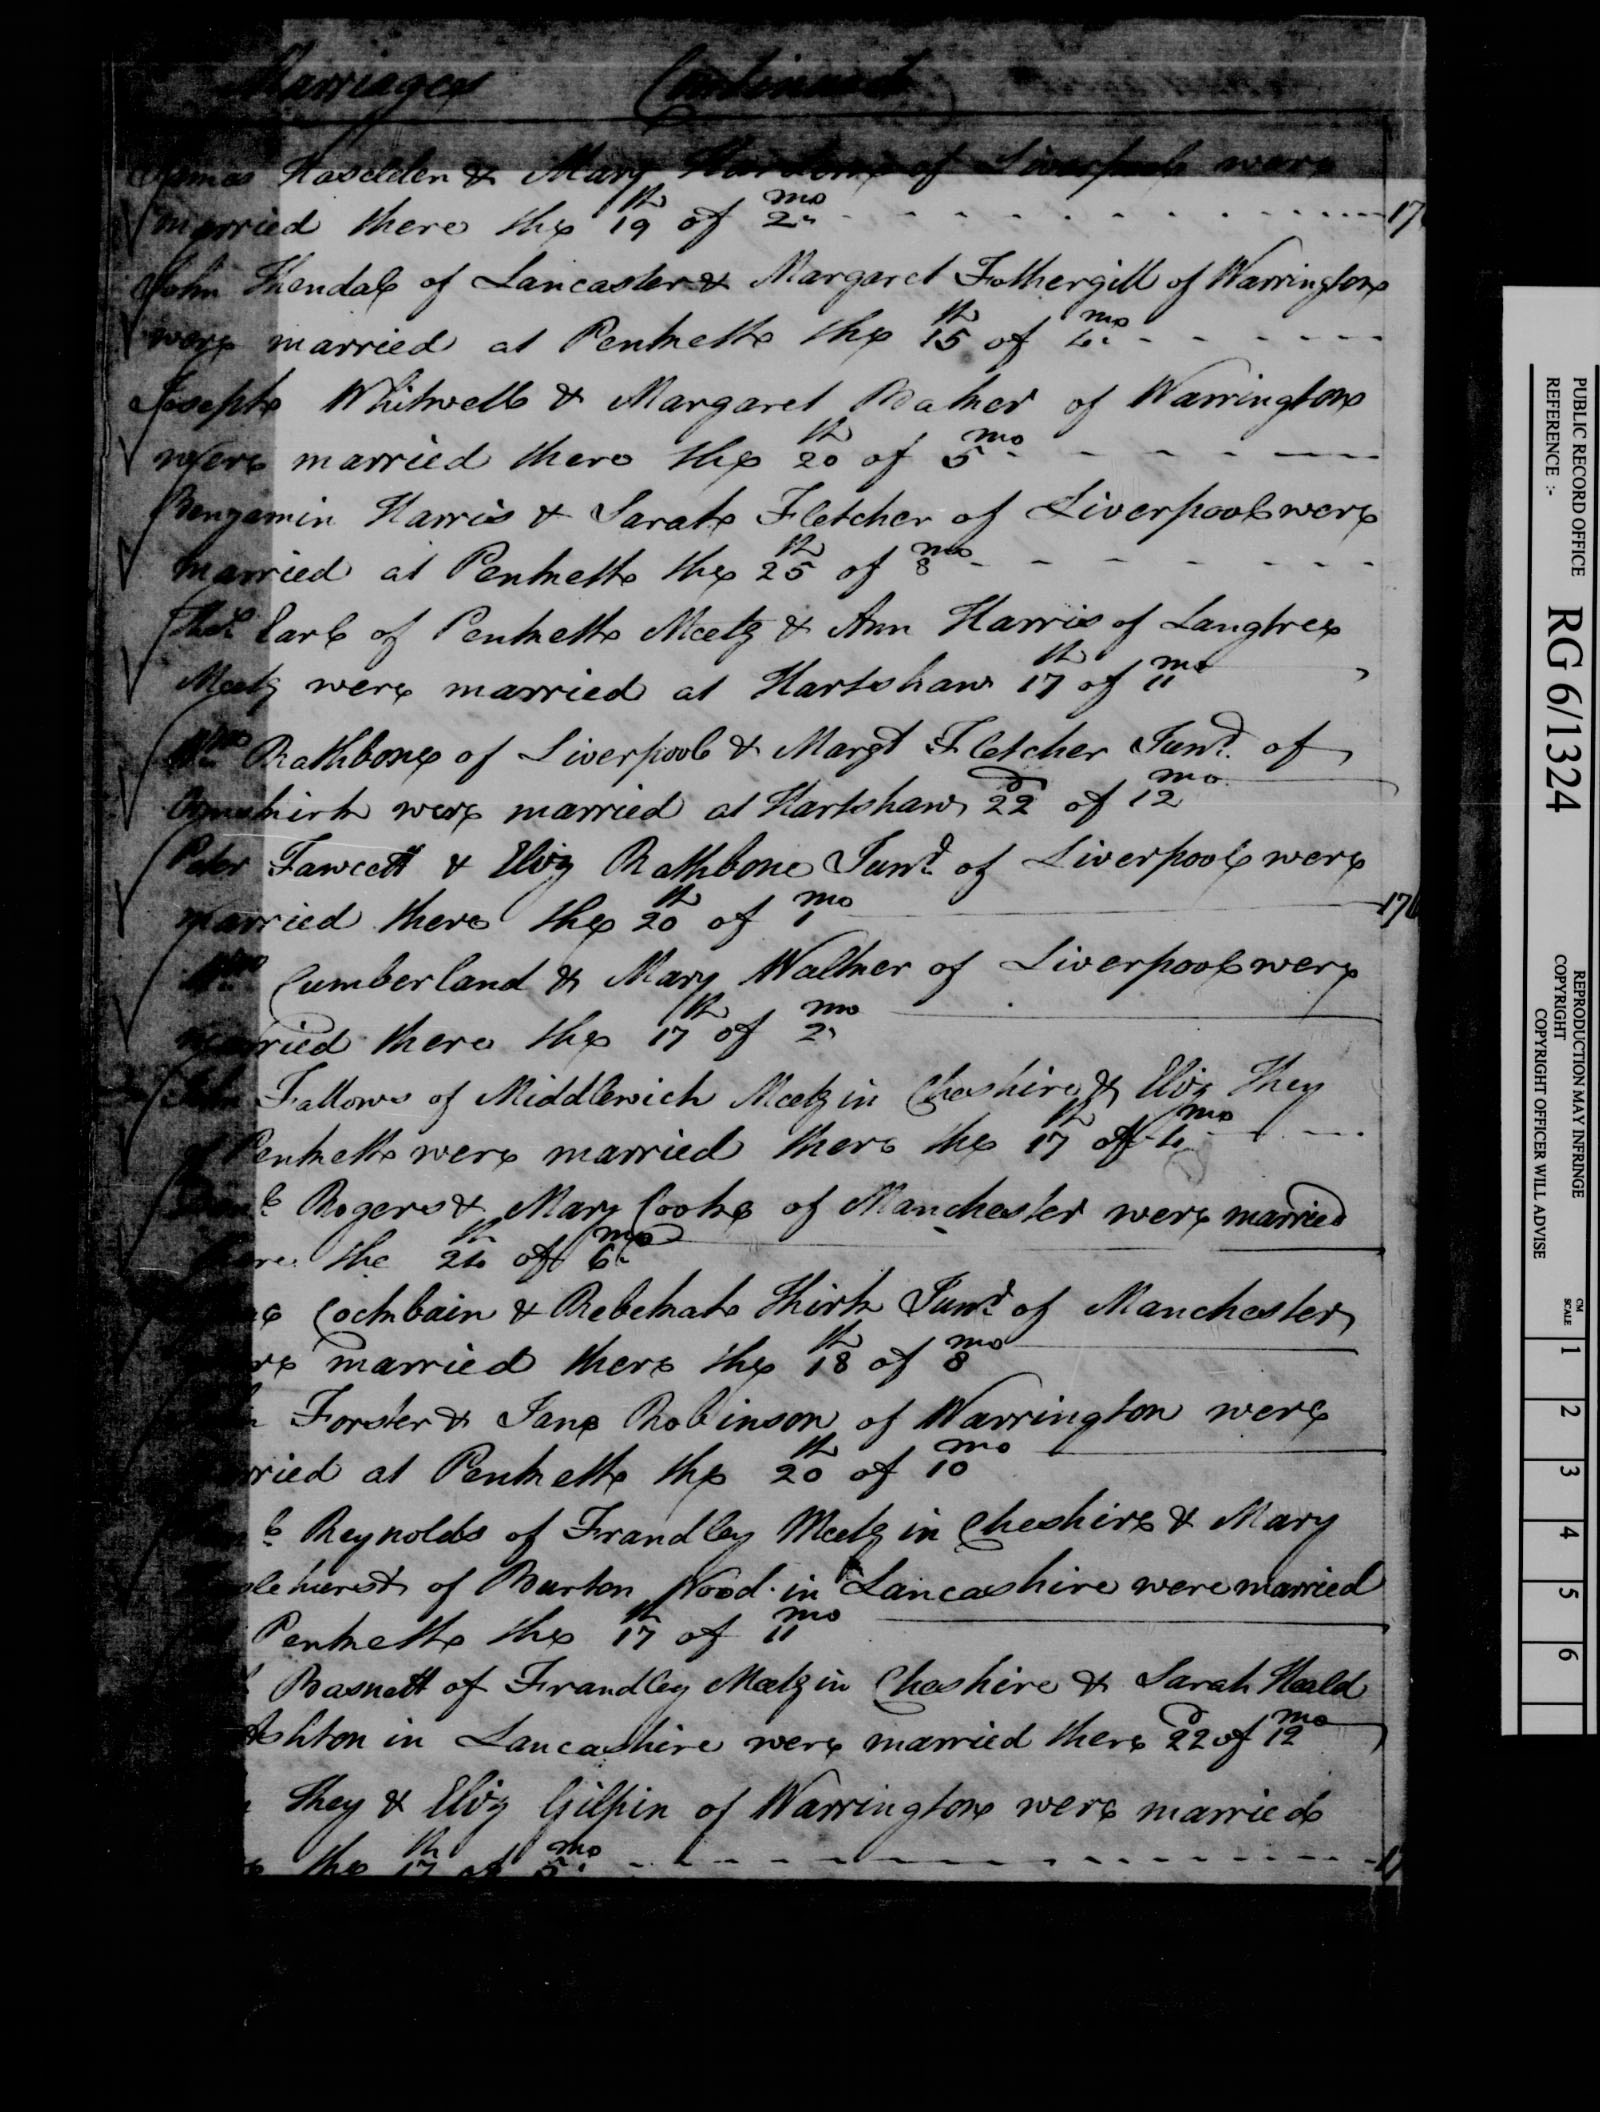 Marriages Continued
James Haselden & Mary of Liverpool were
married there the 19th of 2mo 17
John Kendal of Lancaster & Margaret Fothergill of Warrington
were married at Penketh the 15th of 4mo
Joseph Whitwell & Margaret Baker of Warrington
were married there the 20th of 5mo
Benjamin Harris & Sarah Fletcher of Liverpool were
married at Penketh the 25th of 8mo
Earl of Penketh Meetg & Ann Harris of Langtree
Meetg were married at Hartshaw 17th of 11mo
Wm Rathbone of Liverpool & Margt Fletcher Junr. of
Ormskirk were married at Hartshaw 22d of 12mo
Peter Fawcett & Eliz Rathbone Junr. of Liverpool were
married there the 20th of 1mo 176
Wm Cumberland & Mary Walker of Liverpool were
married there the 17th of 2mo
John Fallows of Middlewich Meetg in Cheshire & Eliz Key
of Penketh were married there the 17th of 4mo
Rogers & Mary Cooke of Manchester were married
there the 24th of 6mo
Cockbain & Rebekah Kirk Junr. of Manchester
were married there the 18th of 8mo
Forster & Jane Robinson of Warrington were
married at Penketh the 20th of 10mo
Reynolds of Frandley Meetg in Cheshire & Mary
hurst of Burton Wood in Lancashire were married
Penketh the 17th of 11mo
Basnett of Frandley Meetg in Cheshire & Sarah Heald
Ashton in Lancashire were married there 22d of 12mo
Key & Eliz Gilpin of Warrington were married
the 17th of 5mo 17
PUBLIC RECORD OFFICE
REFERENCE :-
RG 6/1324
REPRODUCTION MAY INFRINGE
COPYRIGHT
COPYRIGHT OFFICER WILL ADVISE
CM
SCALE
1
2
3
4
5
6